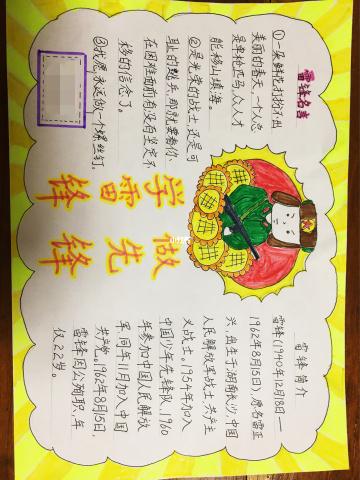 雷锋名言
①一朵鲜花打扮不出
美丽的春天,一个人总
是单枪匹马,众人才
能移山填海。
②是光荣的战士还是可
耻的逃兵,那就要看你
在困难面前有没有坚定不
移的信念了。
③我愿永远做一个螺丝钉。
学雷锋
做先锋
雷锋简介
雷锋(1940年12月18日—
1962年8月15日),原名雷正
兴,出生于湖南长沙,中国
人民解放军战士,共产主
义战士。1954年加入
中国少年先锋队,1960
年参加中国人民解放
军,同年11月加入中国
共产党。1962年8月15日,
雷锋因公殉职,年
仅22岁。